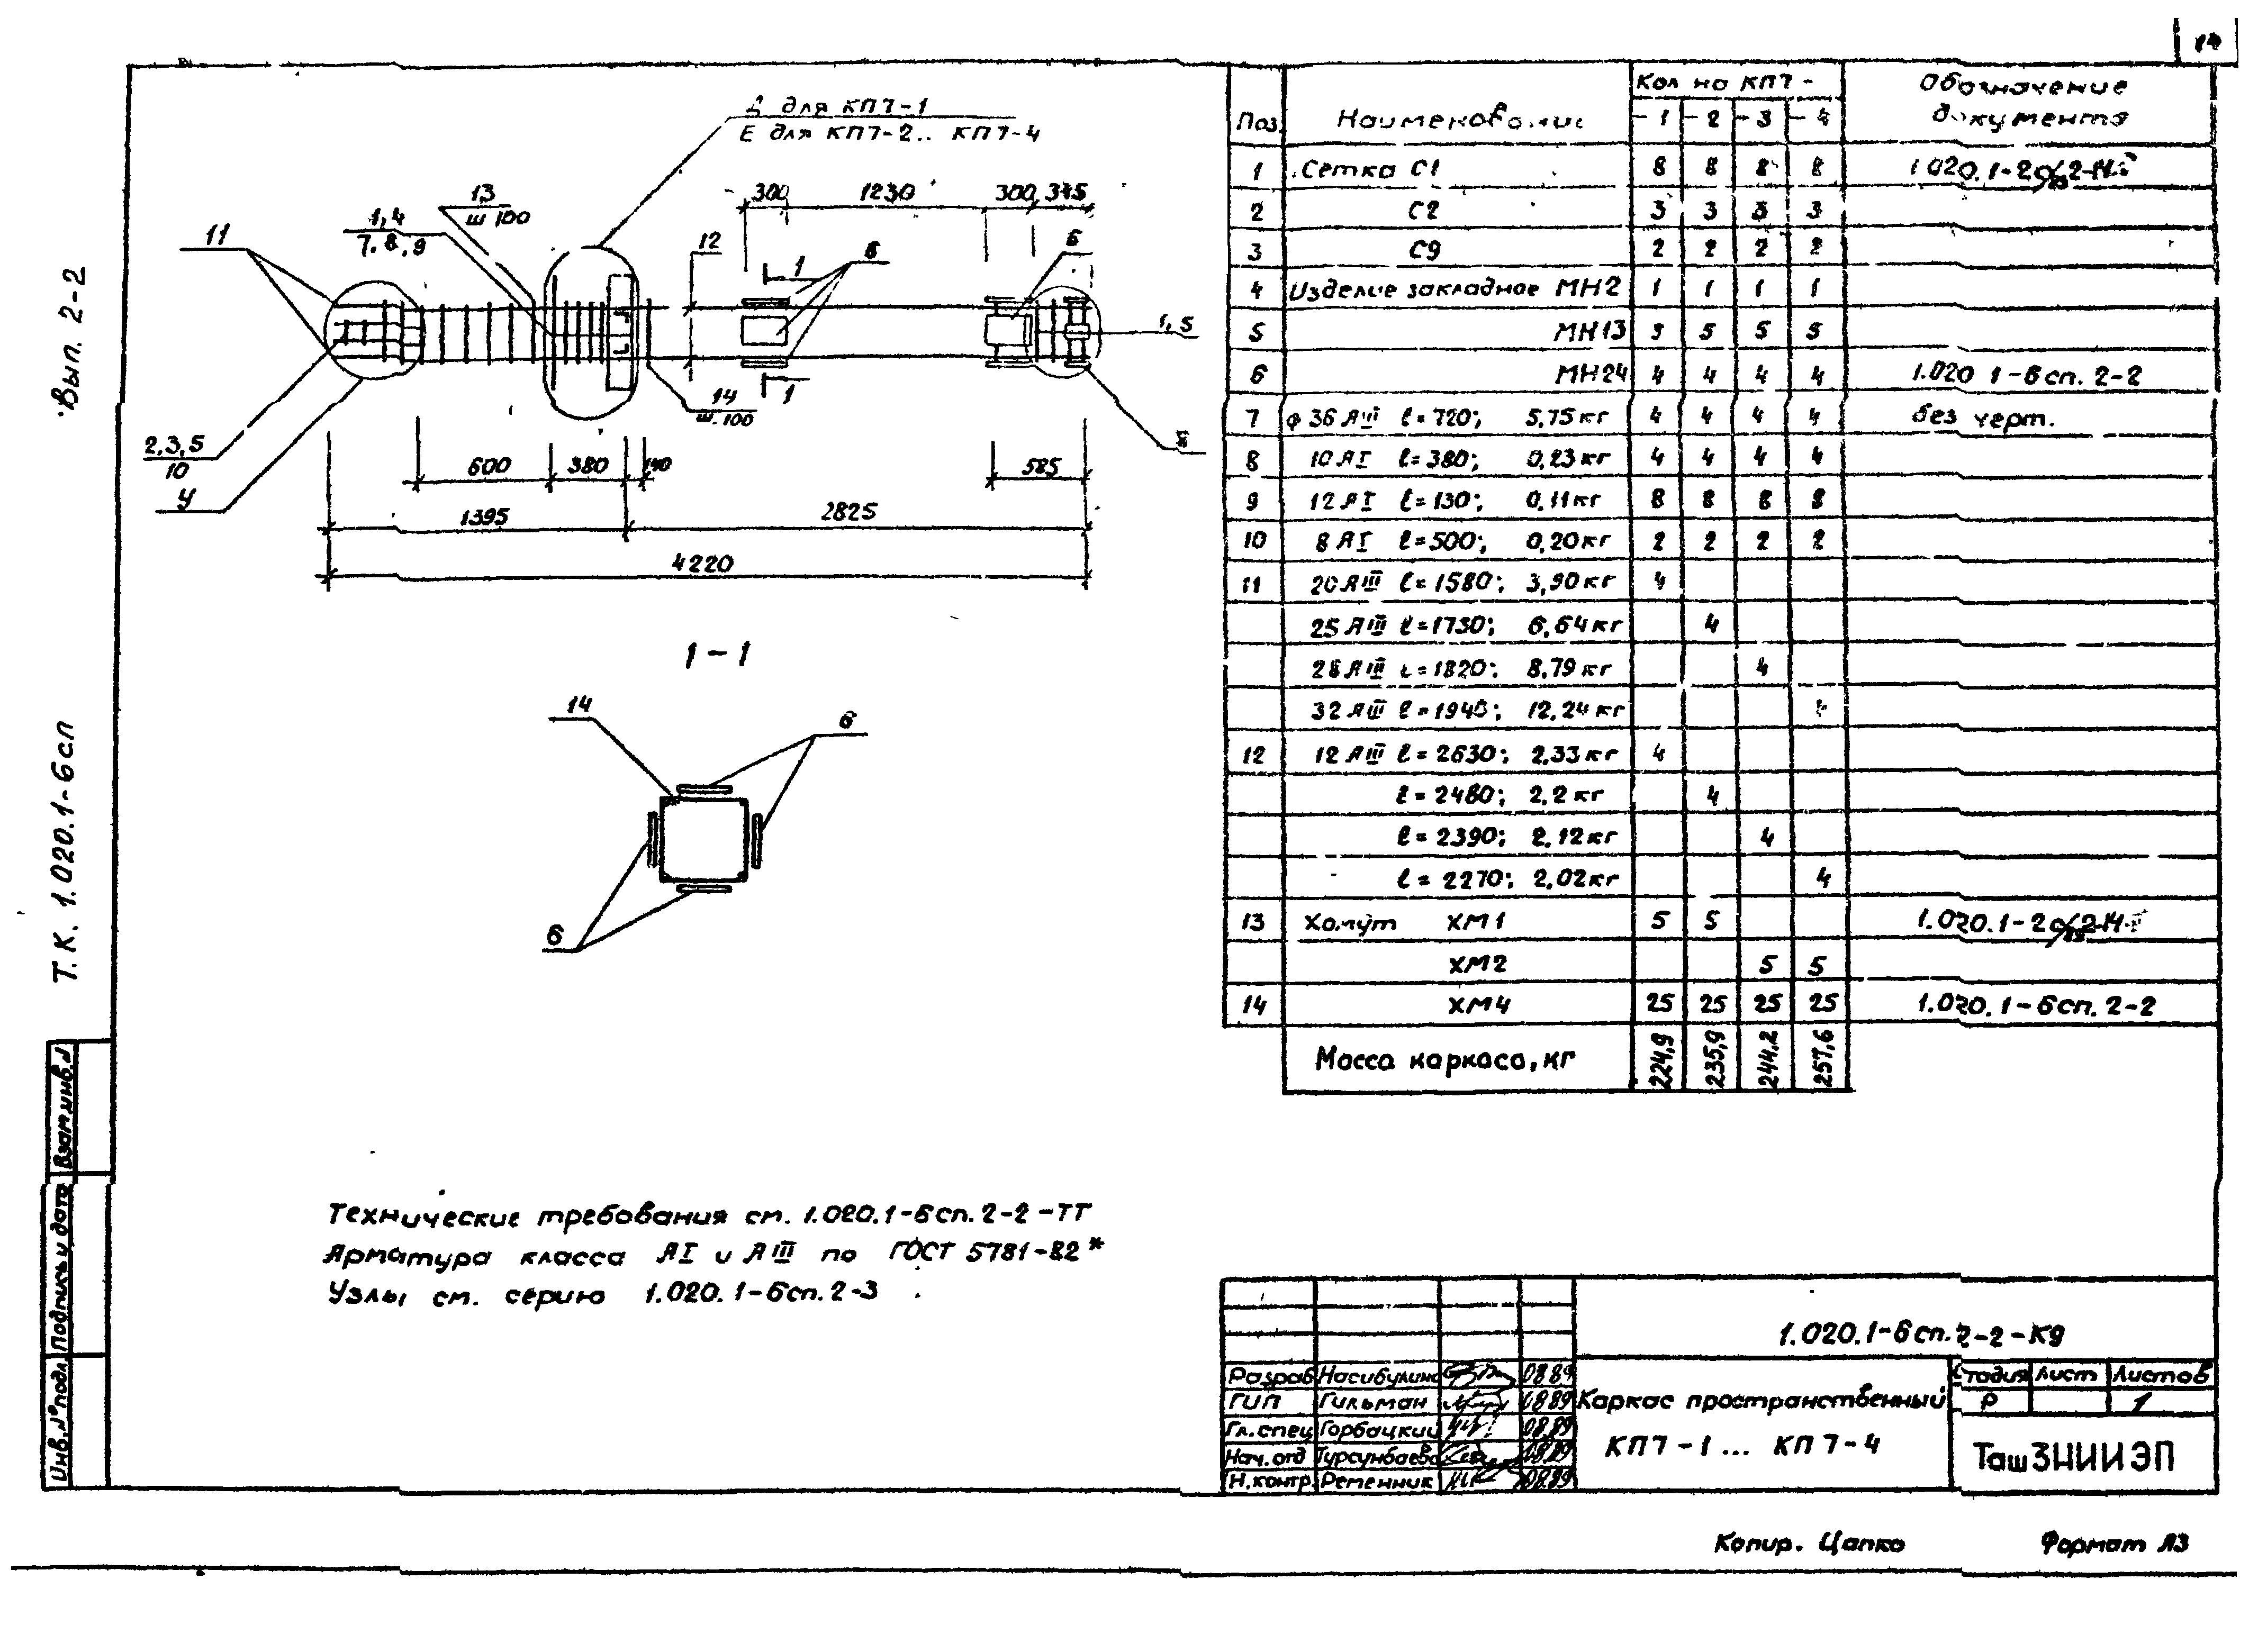 14
Вып. 2-2
Т.К. 1.020.1-6сп
Д для КП7-1
Е для КП7-2.. КП7-4
13
ш 100
1,4
7,8,9
11
300 1230 300 345
12
1
6
6
1,5
14
ш.100
1
2,3,5
10
У
600 380 140 585
1395 2825
4220
1-1
14
6
6
Поз. Наименование Кол на КП7- Обозначение документа
-1 -2 -3 -4
1 Сетка С1 8 8 8 8
2 С2 3 3 3 3
3 С9 2 2 2 2
4 Изделие закладное МН2 1 1 1 1
5 МН13 5 5 5 5
6 МН24 4 4 4 4 1.020 1-6сп. 2-2
7 ф 36 АIII ℓ=720; 5,75кг 4 4 4 4 без черт.
8 10 АI ℓ=380; 0,23кг 4 4 4 4
9 12 АI ℓ=130; 0,11кг 8 8 8 8
10 8 АI ℓ=500; 0,20кг 2 2 2 2
11 20 АIII ℓ=1580; 3,90кг 4
25 АIII ℓ=1730; 6,64кг 4
28 АIII ℓ=1820; 8,79кг 4
32 АIII ℓ=1940; 12,24кг 4
12 12 АIII ℓ=2630; 2,33кг 4
ℓ=2480; 2,2кг 4
ℓ=2390; 2,12кг 4
ℓ=2270; 2,02кг 4
13 Хомут ХМ1 5 5
ХМ2 5 5
14 ХМ4 25 25 25 25 1.020.1-6сп. 2-2
Масса каркаса, кг 224,9 235,9 244,2 257,6
Технические требования см. 1.020.1-6сп.2-2-ТТ
Арматура класса АI и АIII по ГОСТ 5781-82*
Узлы см. серию 1.020.1-6сп.2-3
Взам.инв.№
Подпись и дата
Инв.№ подл.
1.020.1-6сп.2-2-К9
Разраб Насибулина 08.89
ГИП Гильман 08.89
Гл.спец Горбацкий 08.89
Нач.отд Турсунбаева 08.89
Н.контр. Ременник 08.89
Каркас пространственный
КП7-1... КП7-4
Стадия Лист Листов
Р 1
ТашЗНИИЭП
Копир. Цапко Формат А3